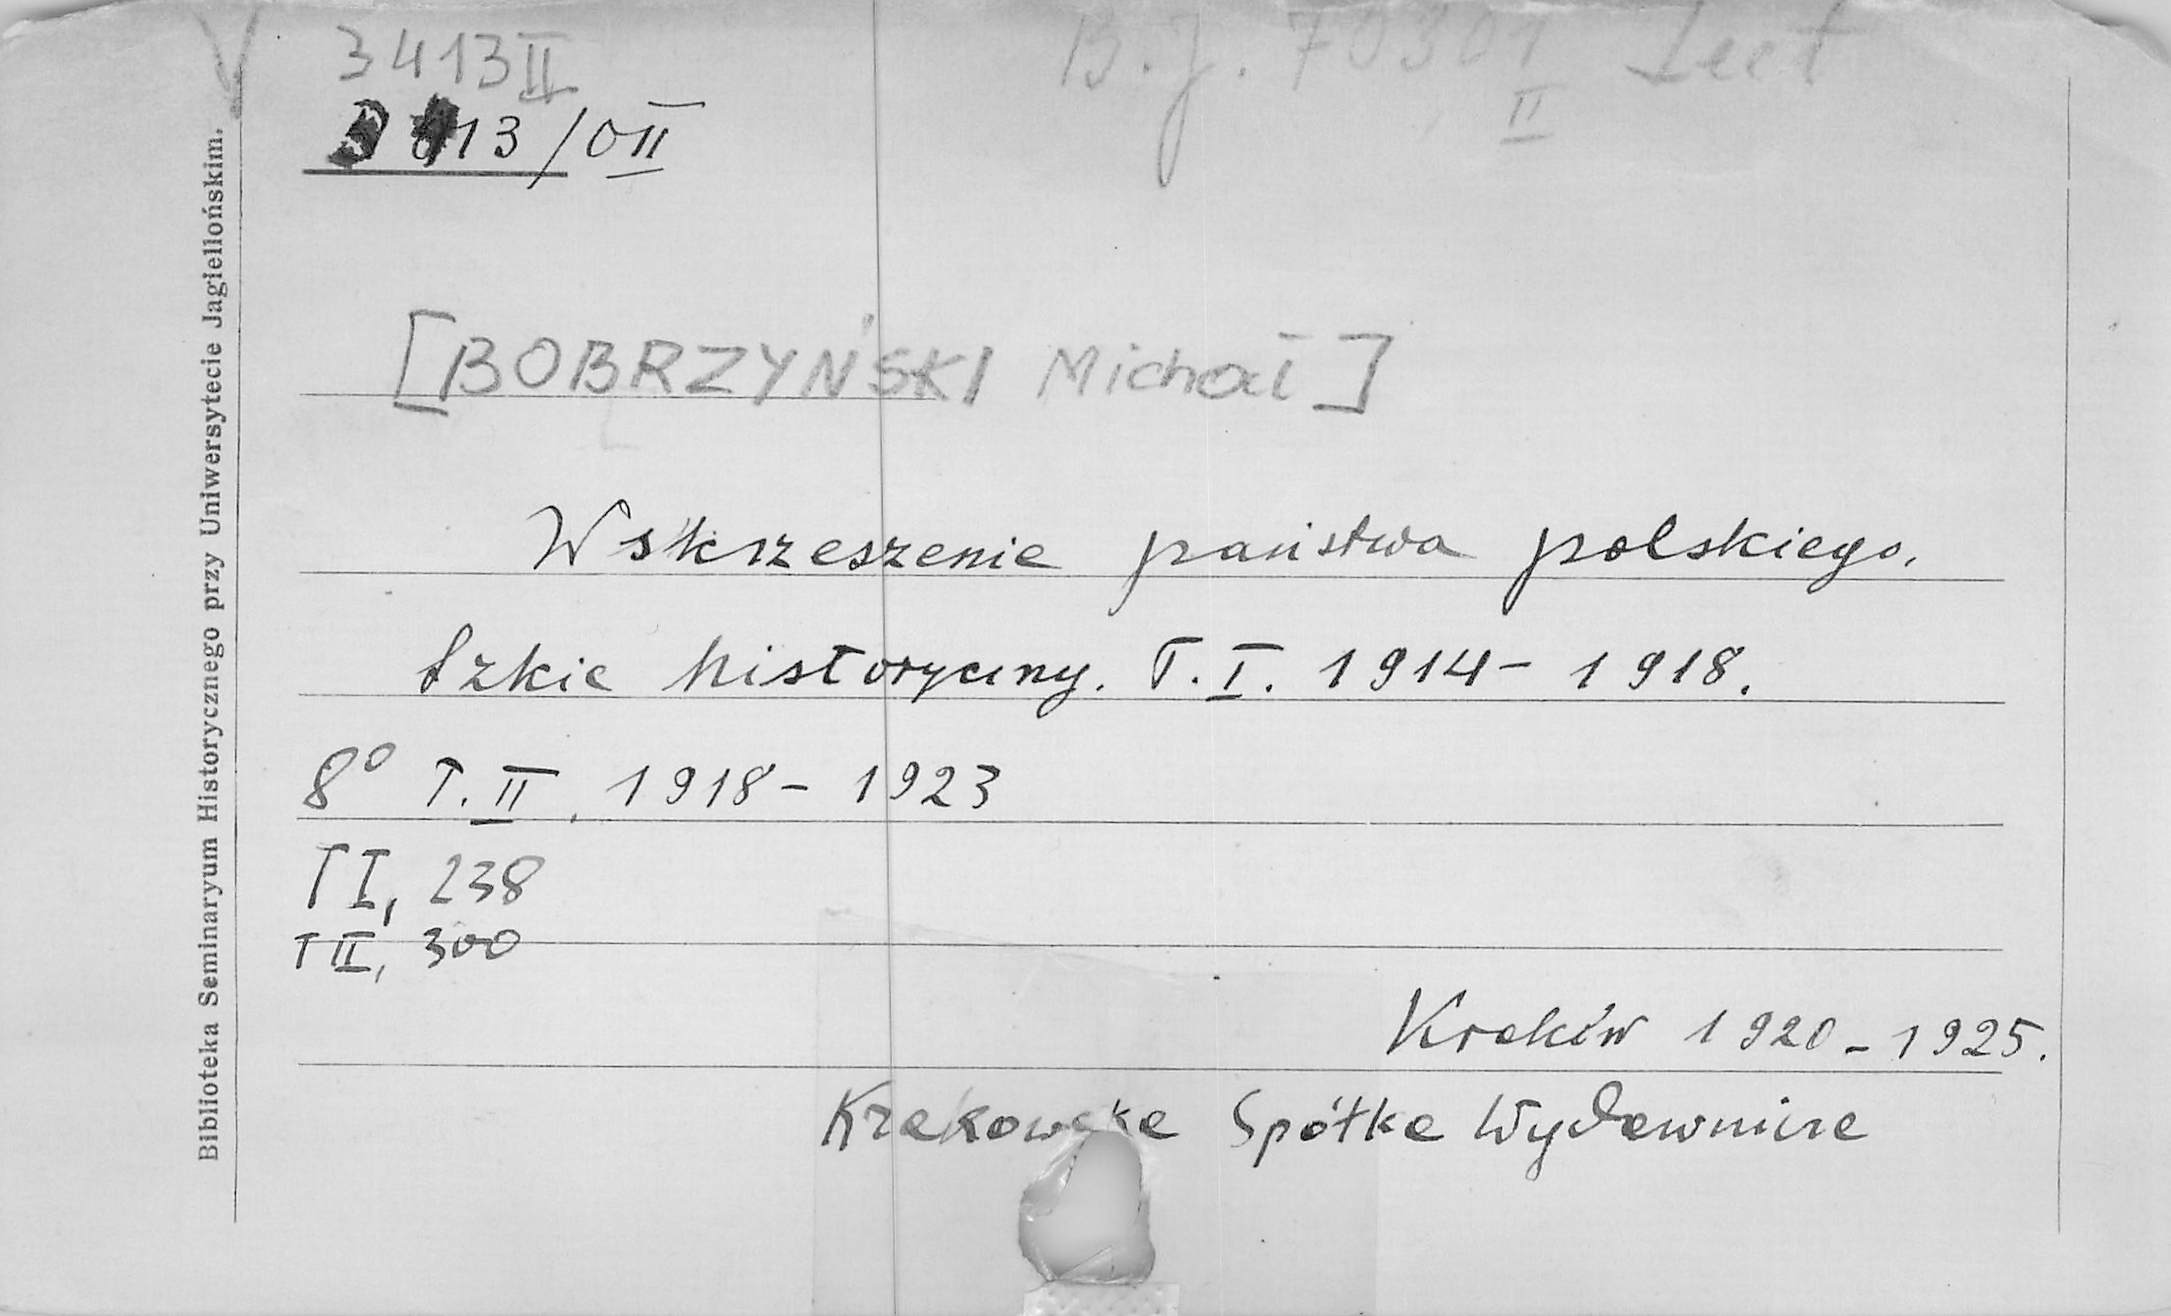 3413 II
B.J. 70301 Lect
II
13/OII
Biblioteka Seminaryum Historycznego przy Uniwersytecie Jagiellońskim.
[BOBRZYŃSKI Michał]
Wskrzeszenie państwa polskiego.
Szkic historyczny. T.I. 1914-1918.
8° T.II. 1918-1923
T I, 238
T II, 300
Kraków 1920-1925.
Krakowska Spółka Wydawnicza